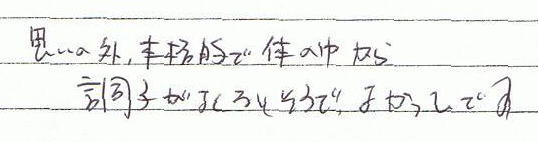 思いの外,本格的で体の中から
調子がよくなりそうで,よかったです